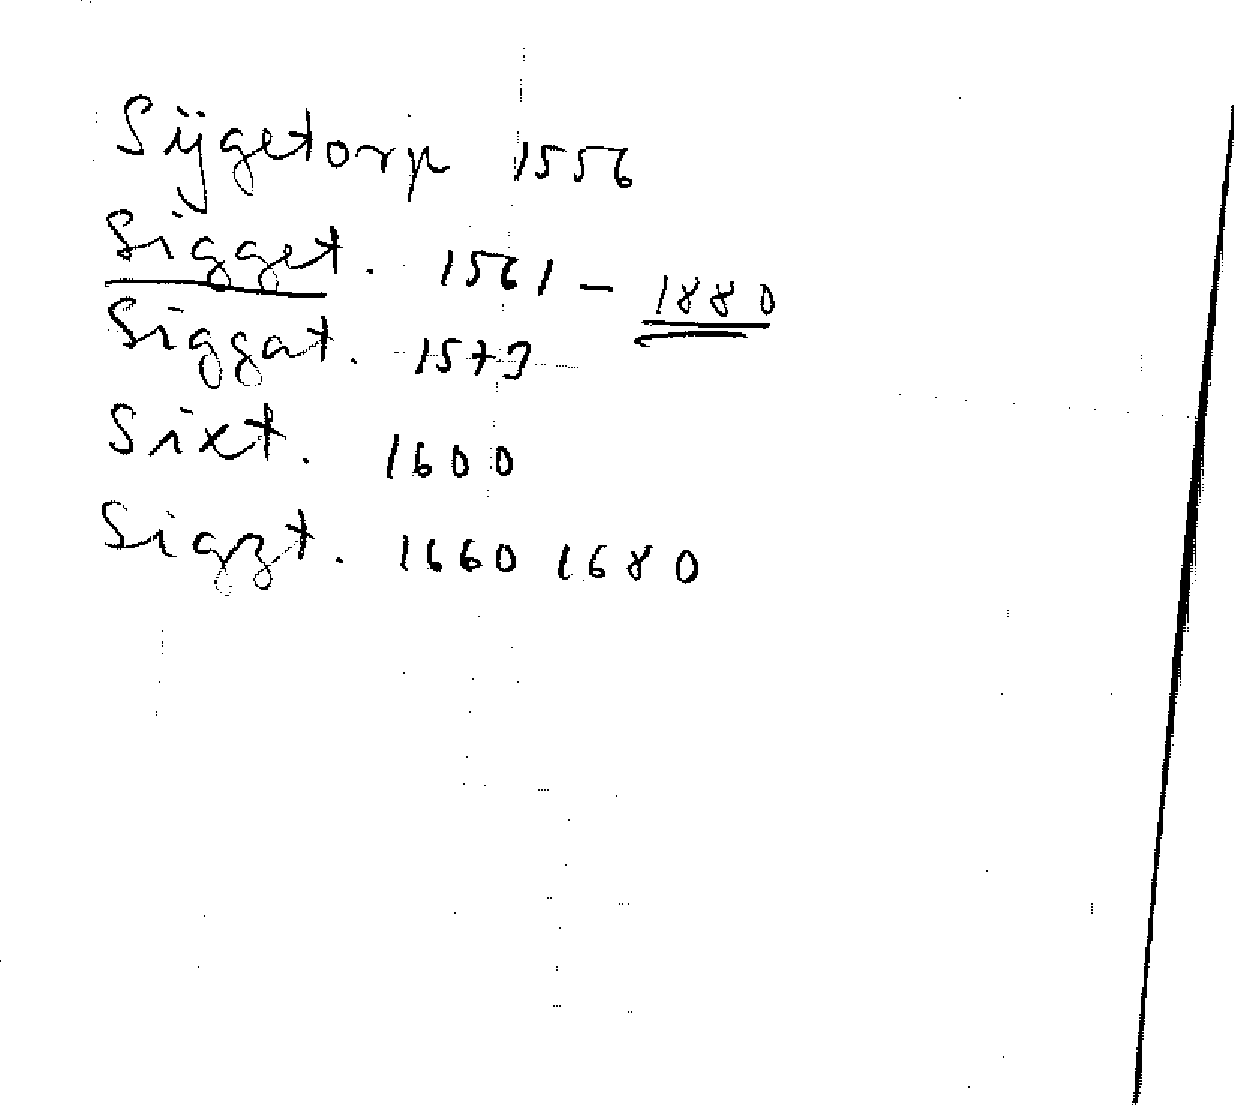 Sijgetorp 1556
Sigget. 1561 – 1880
Siggat. 1573
Sixt. 1600
Sigzt. 1660 1680